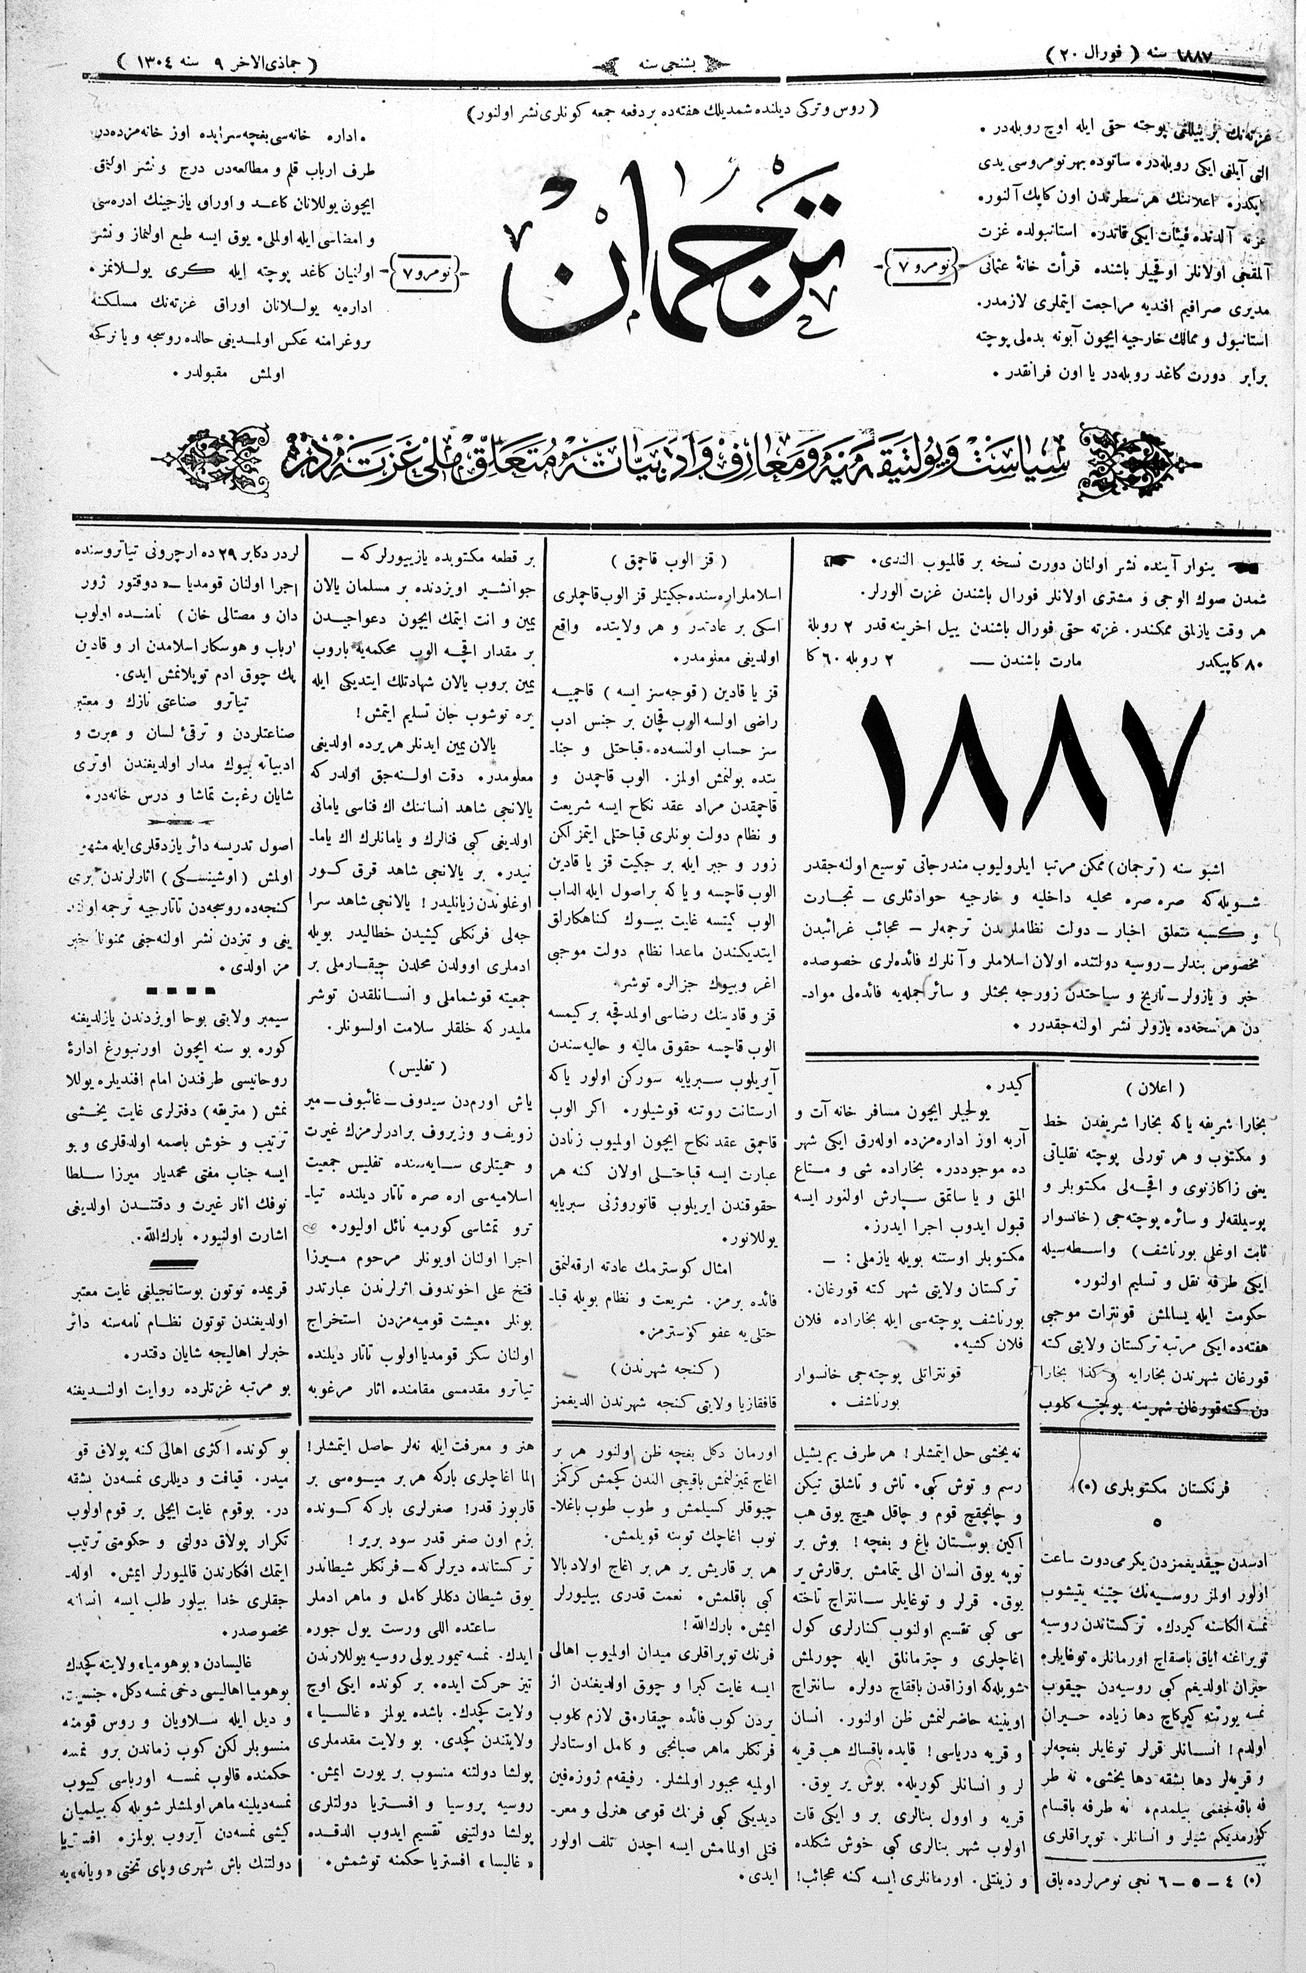 ١٨٨٧ سنه ( فورال ٢٠ )
بشنجی سنه
( جماذی الاخر ٩ سنه ١٣٠٤ )
( روس و تركی دیلنده شمدیلك هفته‌ده بر دفعه جمعه كونلری نشر اولنور )
غزته‌نك بر ییللقی پوچته حقی ایله اوچ روبله‌در .
التی آیلغی ایكی روبله‌دره ساتوده بهر نومروسی یدی
اعلاننك هر سطرندن اون كاپك آلنور.
غزته آلدنده فیئات ایكی قاتدره استانبولده غزت
آلقجی اولانلر اوقجیلر باشنده قرأت خانۀ عثمانی
مدیری صرافیم افندیه مراجعت ایتملری لازمدر.
استانبول و ممالك خارجیه ایچون آبونه بده‌لی پوچته
برابر دورت كاغد روبله‌در یا اون فرانقدر .
نومرو ٧
ترجمان
نومرو ٧
اداره خانه‌سی بغچه سرایده اوز خانه مزده‌در
طرف ارباب قلم و مطالعه‌دن درج و نشر اولنمق
ایچون یوللانان كاغد و اوراق یازجینك ادره‌سی
و امضاسی ایله اولملی. یوق ایسه طبع اولنماز و نشر
اولنیان كاغد پوچته ایله كری یوللانمز.
اداره‌یه یوللانان اوراق غزته‌نك مسلكنه
بروغرامنه عكس اولمدیغی حالده روسجه و یا تركجه
اولمش مقبولدر .
سیاست و پولتیقه‌یه و معارف و ادبیاته متعلق ملی غزته‌در
ینوار آینده نشر اولنان دورت نسخه بر قالمیوب الندی.
شمدن صوك الوجی و مشتری اولانلر فورال باشندن غزت الورلر.
هر وقت یازلمق ممكندر. غزته حقی فورال باشندن ییل اخرینه قدر ٢ روبلۀ
٨٠ كاپیكدر مارت باشندن — ٢ روبله ٦٠ كا
١٨٨٧
اشبو سنه (ترجمان) ممكن مرتبا ایلرولیوب مندرجاتی توسیع اولنه‌جقدر
شویله‌كه صره صره محلیه داخلیه و خارجیه حوادثلری — تجارت
و كسبه متعلق اخبار — دولت نظاملرندن ترجمه‌لر — عجائب غرائبدن
مخصوص بندلر — روسیه دولتنده اولان اسلاملر و آنلرك فائده‌لری خصوصده
خبر و یازولر — تاریخ و سیاحتدن زورجه بحثلر و سائر جمله‌یه فائده‌لی مواد-
دن هر نسخه‌ده یازولر نشر اولنه‌جقدرر .
( اعلان )
بخارا شریفه یاكه بخارا شریفدن خط
و مكتوب و هر تورلی پوچته نقلیاتی
یعنی زاكازنوی و اقچه‌لی مكتوبلر و
پوسیلقه‌لر و سائره پوچته‌جی (خانسوار
ثابت اوغلی بورناشف) واسطه‌سیله
ایكی طرفه نقل و تسلیم اولنور.
حكومت ایله یسالمش قونترات موجبی
هفته‌ده ایكی مرتبه تركستان ولایتی كته
قورغان شهرندن بخارایه و كذا بخارا
دن كته قورغان شهرینه پوچته كلوب
كیدر .
یولجیلر ایچون مسافر خانه آت و
آربه اوز اداره‌مزده اوله‌رق ایكی شهر
ده موجوددر. بخاراده شی و متاع
المق و یا ساتمق سپارش اولنور ایسه
قبول ایدوب اجرا ایدرز.
مكتوبلر اوستنه بویله یازملی : —
تركستان ولایتی شهر كته قورغان.
بورناشف پوچته‌سی ایله بخاراده فلان
فلان كشیه.
قونتراتلی پوچته‌جی خانسوار
بورناشف .
( قز الوب قاچمق )
اسلاملر اره‌سنده جكیتلر قز الوب قاچملری
اسكی بر عادتدر و هر ولایتده واقع
اولدیغی معلومدر.
قز یا قادین ( قوجه‌سز ایسه ) قاچمیه
راضی اولسه الوب قچان بر جنس ادب
سز حساب اولنسه‌ده قباحتلی و جنا-
یتده بولنمش اولمز. الوب قاچمدن و
قاچمقدن مراد عقد نكاح ایسه شریعت
و نظام دولت بونلری قباحتلی ایتمز لكن
زور و جبر ایله بر جكیت قز یا قادین
الوب قاچسه و یا كه بر اصول ایله الداب
الوب كیتسه غایت بیوك كناهكارلق
ایتدیكندن ماعدا نظام دولت موجبی
اغر و بیوك جزالره توشر.
قز و قادینك رضاسی اولمدقچه بر كیمسه
الوب قاچسه حقوق مالیه و حالیه‌سندن
آیریلوب سبریایه سوركن اولور یاكه
ارستانت روتنه قوشیلور. اكر الوب
قاچمق عقد نكاح ایچون اولمیوب زنادن
عبارت ایسه قباحتلی اولان كنه هر
حقوقندن ایریلوب قانوروژنی سبریایه
یوللانور.
امثال كوسترمك عادته ارقه‌لنمق
فائده برمز. شریعت و نظام بویله قبا-
حتلی‌یه عفو كوسترمز.
( كنجه شهرندن )
قافقازیا ولایتی كنجه شهرندن الدیغمز
بر قطعه مكتوبده یازیبیورلركه —
جوانشیر اویزدنده بر مسلمان یالان
یمین و انت ایتمك ایچون دعواجیدن
بر مقدار اقچه الوب محكمه‌یه باروب
یمین بروب یالان شهادتلك ایتدیكی ایله
یره توشوب جان تسلیم ایتمش!
یالان یمین ایدنلر هر یرده اولدیغی
معلومدر. دقت اولنه‌جق اولدر كه
یالانجی شاهد انساننك اك فناسی یامانی
اولدیغی كبی فنالرك و یامانلرك اك یاما-
نیدر. بر یالانجی شاهد قرق كور
اوغلوندن زیانلیدر! یالانجی شاهد سرا
جه‌لی فرنكلی كیشیدن خطالیدر بویله
ادملری اوولدن محلدن چیقارملی بر
جمعیته قوشماملی و انسانلقدن توشر
ملیدر كه خلقلر سلامت اولسونلر.
( تفلیس )
یاش اورم‌دن سیدوف — غائبوف — میر
زویف و وزیروف برادرلرمزك غیرت
و حمیتلری سایه‌سنده تفلیس جمعیت
اسلامیه‌سی اره صره تاتار دیلنده تیا-
ترو تمشاسی كورمیه نائل اولیور.
اجرا اولنان اویونلر مرحوم میرزا
فتخ علی اخوندوف اثرلرندن عبارتدر
بونلر معیشت قومیه‌مزدن استخراج
اولنان سكز قومدیا اولوب تاتار دیلنده
تیاترو مقدمسی مقامنده اثار مرغوبه
لردر دكابر ٢٩ ده ارچرونی تیاتروسنده
اجرا اولنان قومدیا — «دوقتور ژور
دان و مصتالی خان) نامنده اولوب
ارباب و هوسكار اسلامدن ار و قادین
پك چوق ادم توپلانمش ایدی.
تیاترو صناعتی نازك و معتبر
صناعتلردن و ترقئ لسان و عبرت و
ادبیاته بیوك مدار اولدیغندن اوتری
شایان رغبت تماشا و درس خانه‌در.
اصول تدریسه دائر یازدقلری ایله مشهور
اولمش (اوشینسكی) اثارلرندن بری
كنجه‌ده روسجه‌دن تاتارجیه ترجمه اولند
یغی و تیزدن نشر اولنه‌جغی ممنونا خبر
مز اولدی.
سیمبر ولایتی بوجا اویزدندن یازلدیغنه
كوره بو سنه ایچون اورنبورغ ادارۀ
روحانیسی طرفندن امام افندیلره یوللا
نمش (متریقه) دفترلری غایت یخشی
ترتیب و خوش باصمه اولدقلری و بو
ایسه جناب مفتی محمدیار میرزا سلطا
نوفك اثار غیرت و دقتندن اولدیغی
اشارت اولنیور. بارك‌الله.
قریمده توتون بوستانجیلغی غایت معتبر
اولدیغندن توتون نظام نامه‌سنه دائر
خبرلر اهالیجه شایان دقتدر.
بو مرتبه غزتلرده روایت اولندیغنه
فرنكستان مكتوبلری (٥)
٥
ادسدن چیقدیغمزدن یكرمی دوت ساعت
اولور اولمز روسیه‌نك چتینه یتیشوب
نمسه الكاسنه كیردك. تركستاندن روسیه
توپراغنه ایاق باصقاچ اورمانلره توغایلره
حیران اولدیغم كبی روسیه‌دن چیقوب
نمسه یورتنه كیركاچ دها زیاده حیران
اولدم! انسانلر قرلر توغایلر بغچه‌لر
و قریه‌لر دها بشقه دها یخشی. نه طر
فه باقه‌جغمی بیلمدم. نه طرفه باقسام
كورمدیكم شیلر و انسانلر. توپراقلری
(٥) ٤ — ٥ — ٦ نجی نومرلرده باق
نه یخشی حل ایتمشلر! هر طرف یم یشیل
رسم و توش كبی. تاش و تاشلق تیكن
و چانچقچ قوم و چاقل هیچ یوق هب
اكین بوستان باغ و بغچه! بوش بر
توپه یوق انسان الی یتمامش بر قارش یر
یوق. قرلر و توغایلر سانتراچ تاخته
سی كبی تقسیم اولنوب كنارلری كول
اغاچلری و چترمانلق ایله چورلمش
شویله‌كه اوزاقدن باققاچ دولره سانتراچ
اویننه حاضرلنمش ظن اولنور. انسان
و قریه دریاسی! قایده باقساك هب قریه
لر و انسانلر كوریله. بوش یر یوق.
قریه و اوول بنالری بر و ایكی قات
اولوب شهر بنالری كبی خوش شكلده
و زینتلی. اورمانلری ایسه كنه عجائب!
اورمان دكل بغچه ظن اولنور هر بر
اغاچ تمیزلنمش باقیجی الندن كچمش كركمز
چبوقلر كسیلمش و طوب طوب باغلا-
نوب اغاچك توبنه قویلمش.
هر بر قاریش یر هر بر اغاج اولاد بالا
كبی باقلمش. نعمت قدری بیلیورلر
ایمش. بارك‌الله!
فرنك توپراقلری میدان اولمیوب اهالی
ایسه غایت كبرا و چوق اولدیغندن از
یردن كوب فائده چیقارمق لازم كلوب
فرنكلر ماهر صبانجی و كامل اوستادلر
اولمیه مجبور اولمشلر. رفیقه‌م ژوزه‌فین
دیدیكی كبی فرنك قومی هنرلی و معر-
فتلی اولمامش ایسه اچدن تلف اولور
ایدی.
هنر و معرفت ایله نه‌لر حاصل ایتمشلر!
الما اغاچلری بارکه هر بر میوه‌سی بر
قاربوز قدر! صغرلری بارکه كونده
بزم اون صغر قدر سود بریر!
تركستانده دیرلركه — فرنكلر شیطاندر
یوق شیطان دكللر كامل و ماهر ادملر
ساعتده اللی ورست یول جوره
ایدك. نمسه تیمور یولی روسیه یوللارندن
تیز حركت ایده. بر كونده ایكی اوچ
ولایت كچدك. باشده یولمز «غالسیا»
ولایتندن كچدی. بو ولایت مقدملری
پولشا دولتنه منسوب بر یورت ایمش.
روسیه پروسیا و افستریا دولتلری
پولشا دولتینی تقسیم ایدوب الدقده
«غالسیا» افستریا حكمنه توشمش.
بو كونده اكثری اهالی كنه پولاق قو
میدر. قیافت و دیللری نمسه‌دن بشقه
در. بوقوم غایت ایچلی بر قوم اولوب
تكرار پولاق دولتی و حكومتی ترتیب
ایتمك افكارندن قالمیورلر ایمش. اوله-
جقلری خدا بیلور طلب ایسه انسانه
مخصوصدر.
غالیسادن «بوهومیا» ولایته كچدك
بوهومیا اهالیسی دخی نمسه دكل. جنسیت
و دیل ایله سلاویان و روس قومنه
منسوبلر لكن كوب زماندن برو نمسه
حكمنده قالوب نمسه اورباسی كییوب
نمسه دیلینه ماهر اولمشلر شویله كه بیلمیان
كیشی نمسه‌دن آیروب بولمز. افستریا
دولتنك باش شهری و پای تختی «ویانه»یه